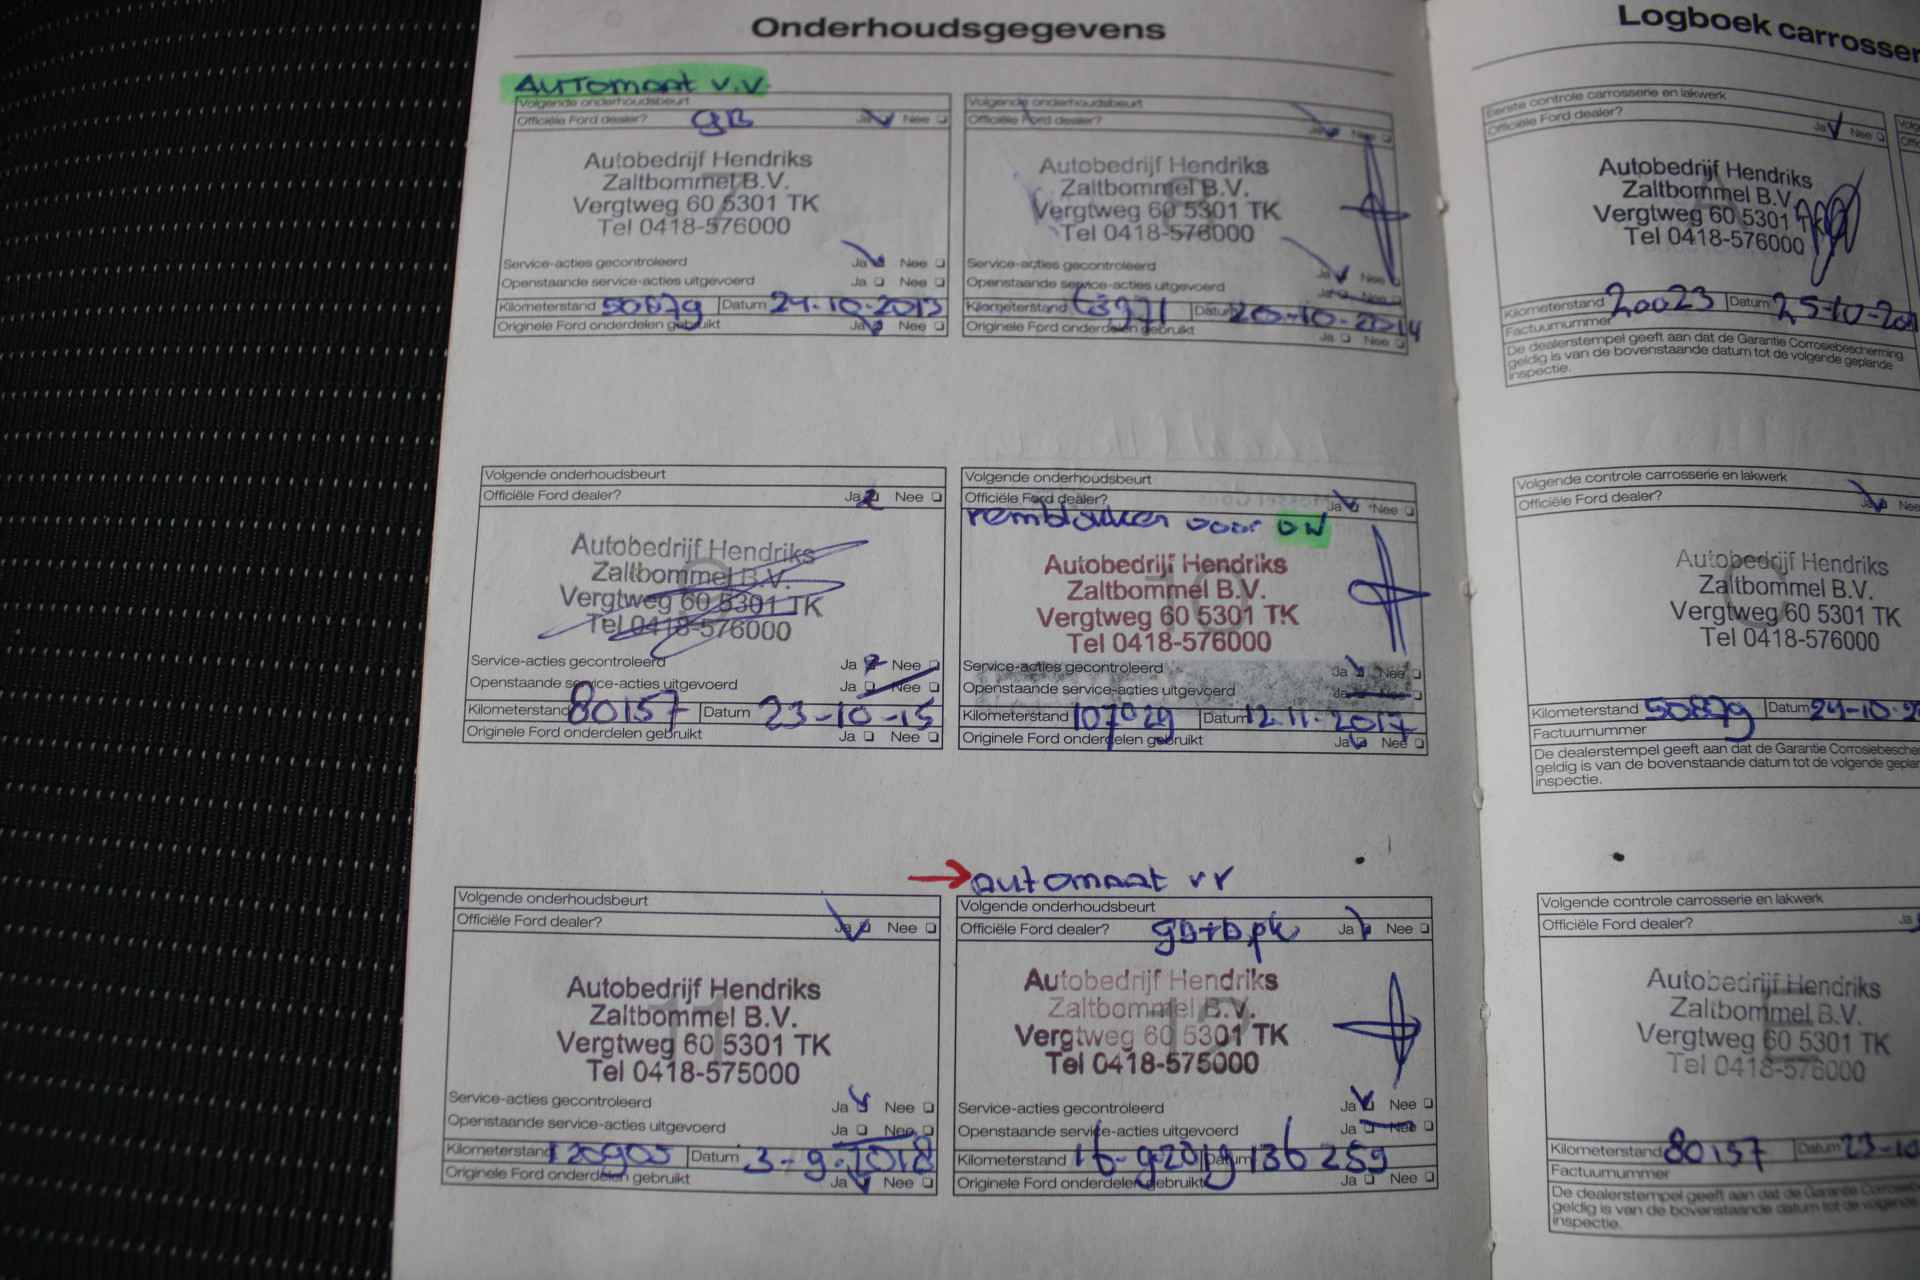 Onderhoudsgegevens
Automaat v.v
Volgende onderhoudsbeurt
Officiële Ford dealer? gB Ja Nee
Autobedrijf Hendriks
Zaltbommel B.V.
Vergtweg 60 5301 TK
Tel 0418-576000
Service-acties gecontroleerd Ja Nee
Openstaande service-acties uitgevoerd Ja Nee
Kilometerstand 50879 Datum 24-10-2013
Originele Ford onderdelen gebruikt Ja Nee
Volgende onderhoudsbeurt
Officiële Ford dealer? Ja Nee
Autobedrijf Hendriks
Zaltbommel B.V.
Vergtweg 60 5301 TK
Tel 0418-576000
Service-acties gecontroleerd Ja Nee
Openstaande service-acties uitgevoerd Ja Nee
Kilometerstand Datum 20-10-2014
Originele Ford onderdelen gebruikt Ja Nee
Volgende onderhoudsbeurt
Officiële Ford dealer? Ja Nee
Autobedrijf Hendriks
Zaltbommel B.V.
Vergtweg 60 5301 TK
Tel 0418-576000
Service-acties gecontroleerd Ja Nee
Openstaande service-acties uitgevoerd Ja Nee
Kilometerstand 80157 Datum 23-10-15
Originele Ford onderdelen gebruikt Ja Nee
Volgende onderhoudsbeurt
Officiële Ford dealer? Ja Nee
remblokken voor
10
Autobedrijf Hendriks
Zaltbommel B.V.
Vergtweg 60 5301 TK
Tel 0418-576000
Service-acties gecontroleerd Ja Nee
Openstaande service-acties uitgevoerd Ja Nee
Kilometerstand 107029 Datum 12.11.2017
Originele Ford onderdelen gebruikt Ja Nee
Volgende onderhoudsbeurt
Officiële Ford dealer? Ja Nee
11
Autobedrijf Hendriks
Zaltbommel B.V.
Vergtweg 60 5301 TK
Tel 0418-575000
Service-acties gecontroleerd Ja Nee
Openstaande service-acties uitgevoerd Ja Nee
Kilometerstand 120905 Datum 3-9-2018
Originele Ford onderdelen gebruikt Ja Nee
automaat vr
Volgende onderhoudsbeurt
Officiële Ford dealer? gb+b,pk Ja Nee
12
Autobedrijf Hendriks
Zaltbommel B.V.
Vergtweg 60 5301 TK
Tel 0418-575000
Service-acties gecontroleerd Ja Nee
Openstaande service-acties uitgevoerd Ja Nee
Kilometerstand 16-9-2019 Datum 136259
Originele Ford onderdelen gebruikt Ja Nee
Logboek carrosser
Eerste controle carrosserie en lakwerk
Officiële Ford dealer? Ja Nee
Autobedrijf Hendriks
Zaltbommel B.V.
Vergtweg 60 5301
Tel 0418-576000
Kilometerstand 20023 Datum 25-10-20
Factuurnummer
De dealerstempel geeft aan dat de Garantie Corrosiebescherming
geldig is van de bovenstaande datum tot de volgende geplande
inspectie.
Volgende controle carrosserie en lakwerk
Officiële Ford dealer? Ja Nee
Autobedrijf Hendriks
Zaltbommel B.V.
Vergtweg 60 5301 TK
Tel 0418-576000
Kilometerstand 50879 Datum 24-10-20
Factuurnummer
De dealerstempel geeft aan dat de Garantie Corrosiebesche
geldig is van de bovenstaande datum tot de volgende geplan
inspectie.
Volgende controle carrosserie en lakwerk
Officiële Ford dealer? Ja
Autobedrijf Hendriks
Zaltbommel B.V.
Vergtweg 60 5301 TK
Tel 0418-576000
Kilometerstand 80157 Datum 23-10
Factuurnummer
De dealerstempel geeft aan dat de Garantie Corrosie
geldig is van de bovenstaande datum tot de volgende
inspectie.